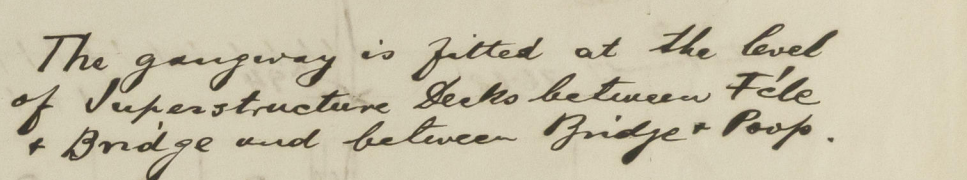 The gangway is fitted at the level
of Superstructure Decks between F'cle
+ Bridge and between Bridge + Poop.